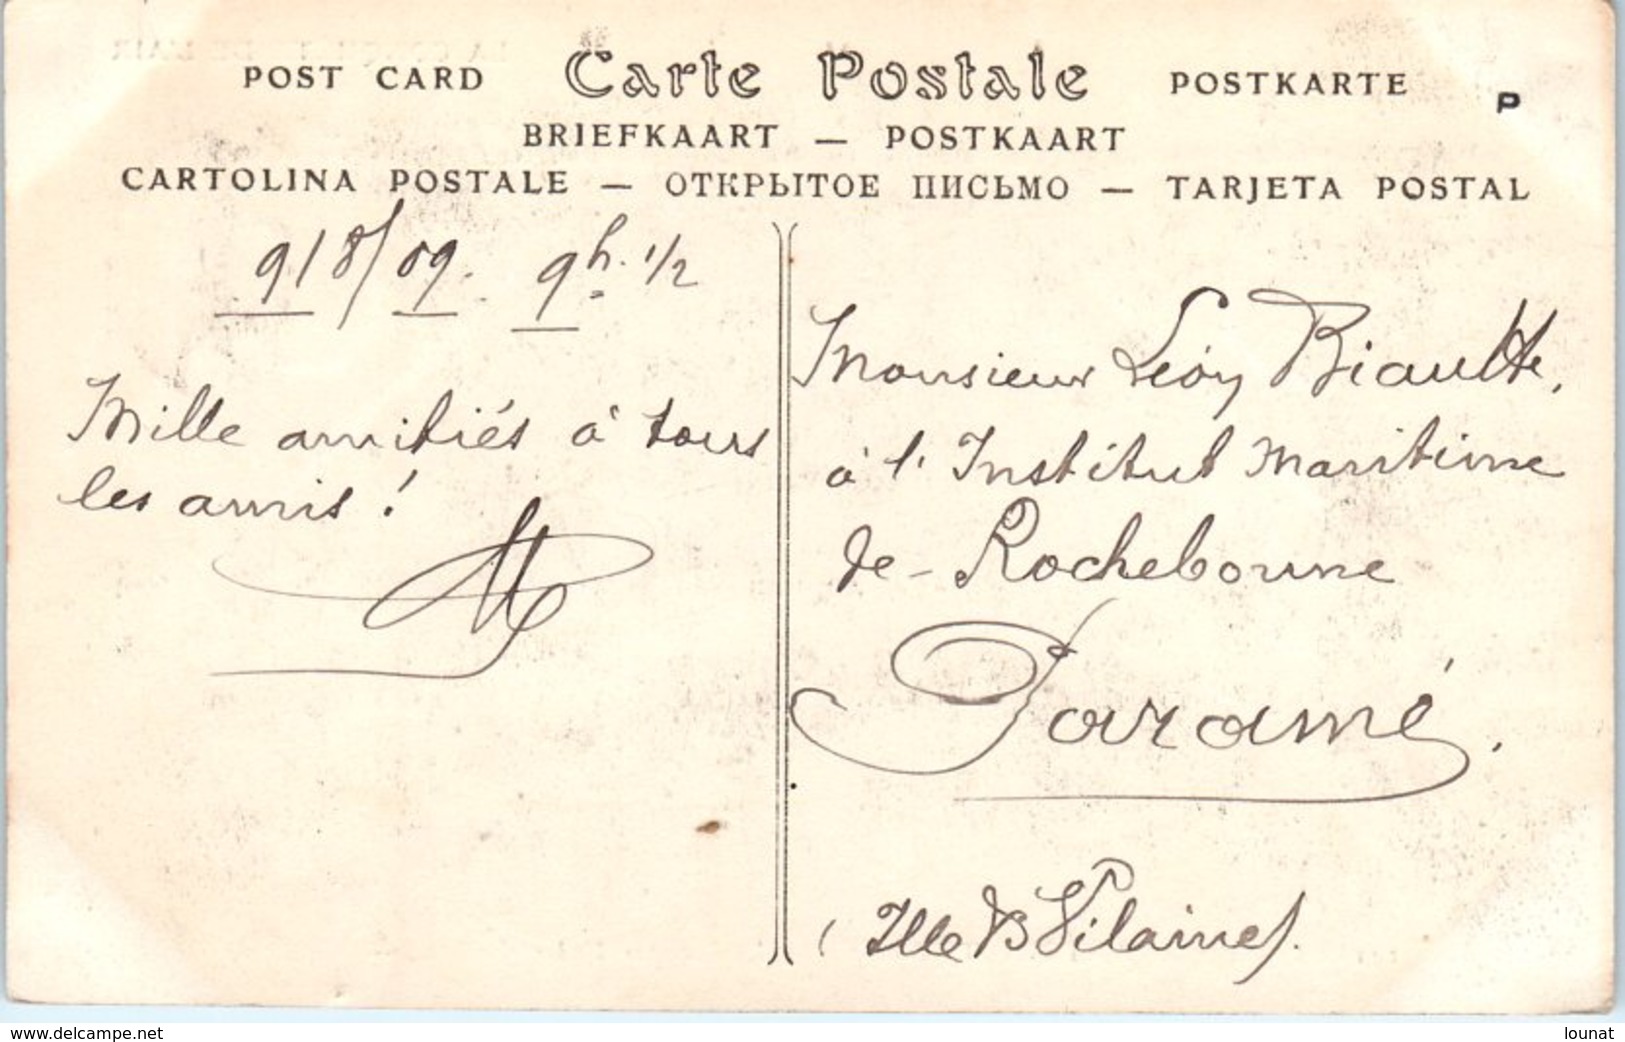 POST CARD Carte Postale POSTKARTE P
BRIEFKAART — POSTKAART
CARTOLINA POSTALE — ОТКРЫТОЕ ПИСЬМО — TARJETA POSTAL
9/8/09. 9h. 1/2
Mille amitiés à tous
les amis !
Monsieur Léon Biaulte,
à l'Institut Maritime
de Rochebonne
Paramé.
(Ille & Vilaine).
www.delcampe.net
lounat